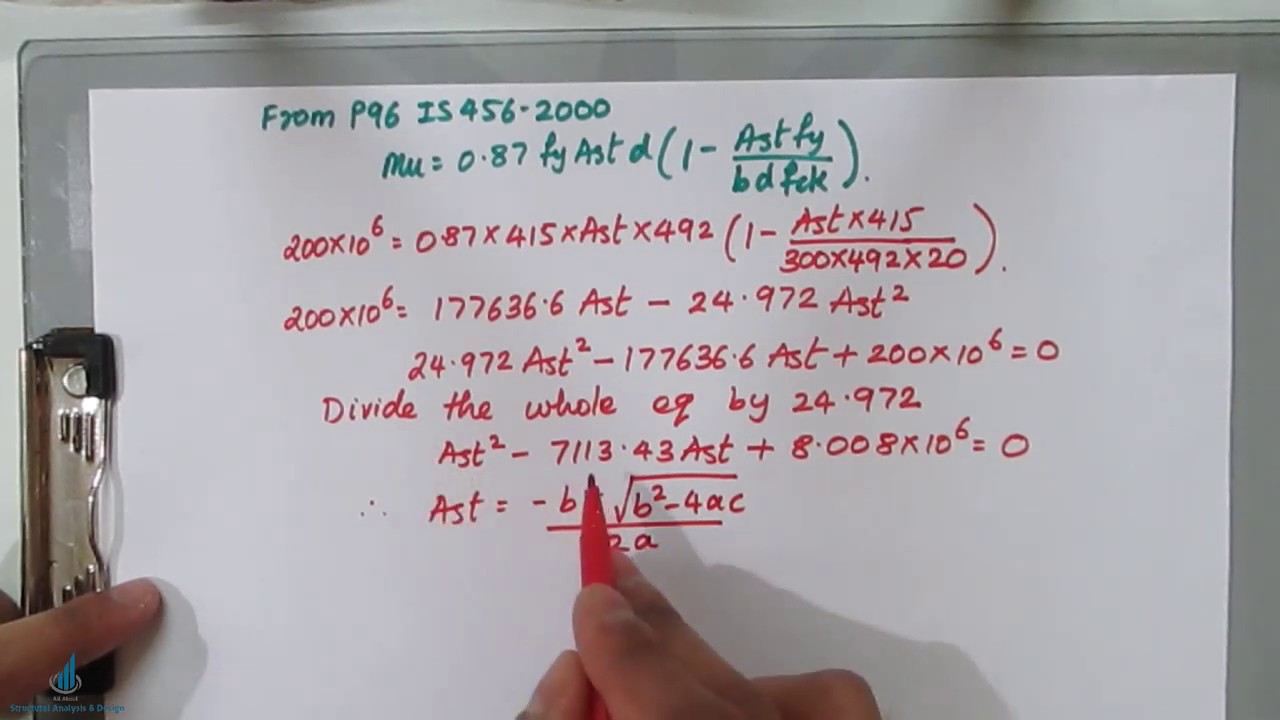 From P96 IS 456-2000
Mu = 0.87 fy Ast d (1 - Ast fy / bd fck).
200×10⁶ = 0.87×415×Ast×492 (1 - Ast×415 / 300×492×20).
200×10⁶ = 177636.6 Ast - 24.972 Ast²
24.972 Ast² - 177636.6 Ast + 200×10⁶ = 0
Divide the whole eq by 24.972
Ast² - 7113.43 Ast + 8.008×10⁶ = 0
∴ Ast = - b √b²-4ac / 2a
All About
Structural Analysis & Design